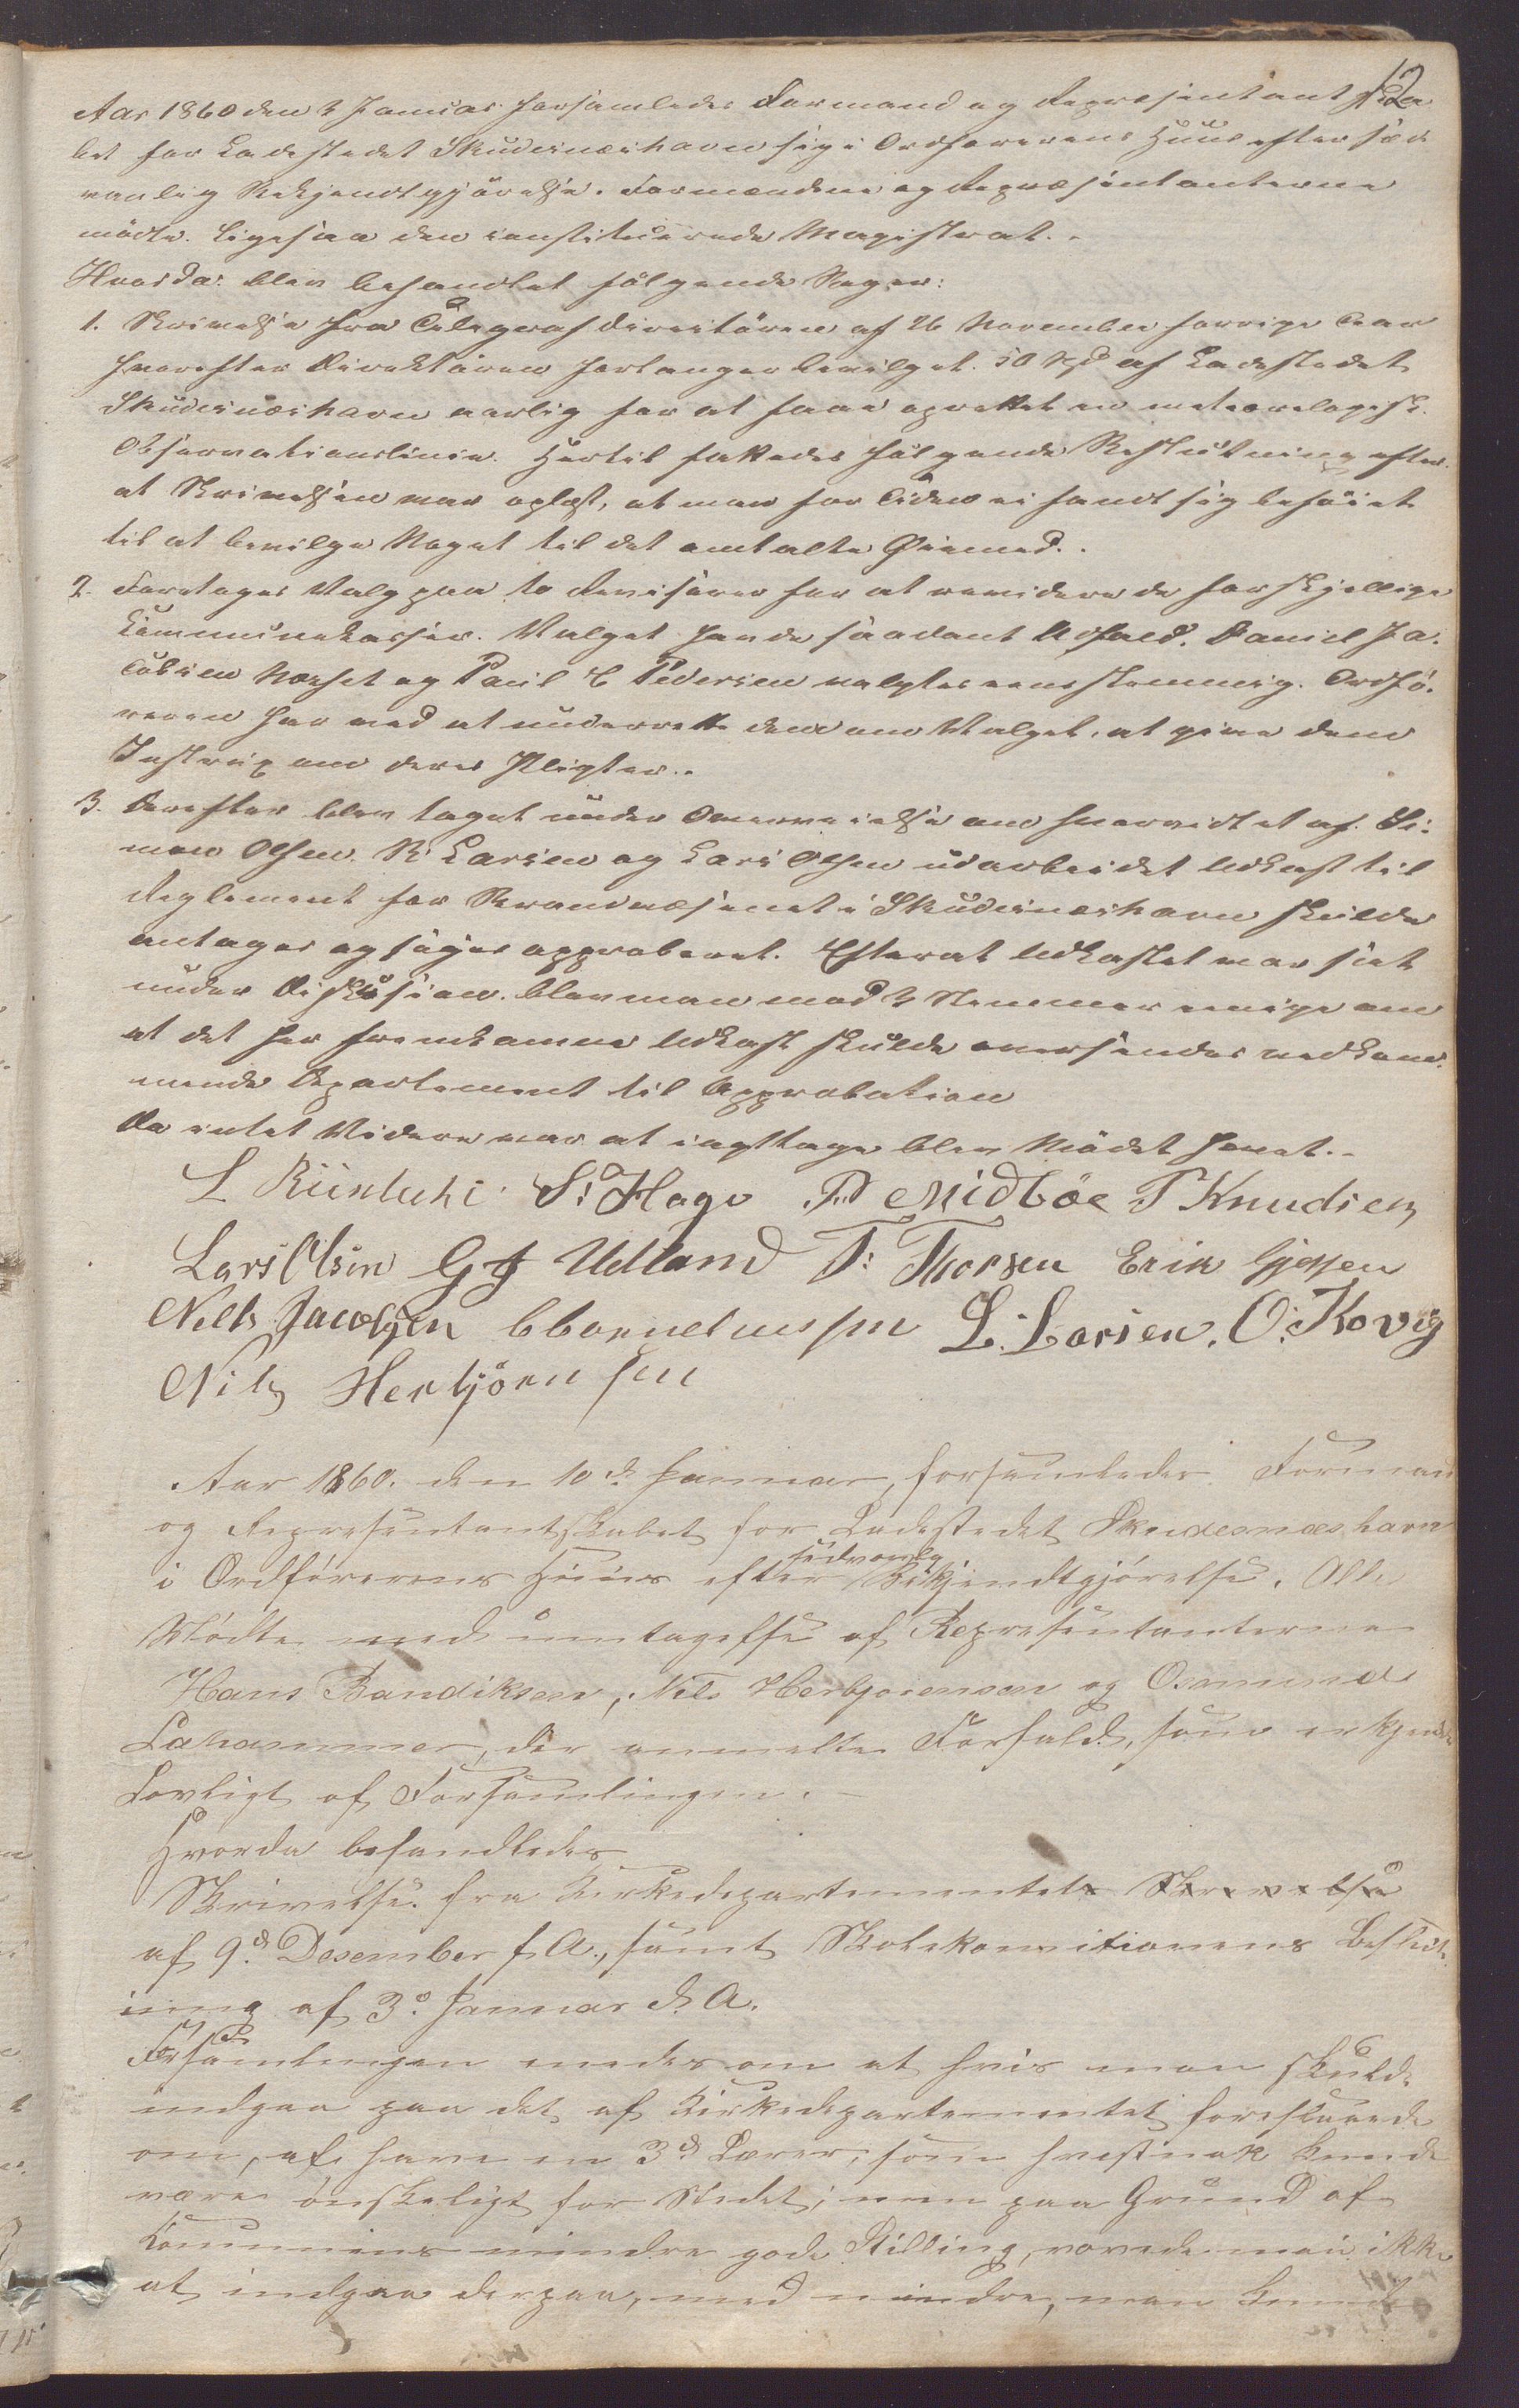 12
Aar 1860 den 3 Januar forsamledes Formand og Repræsentantska
bet for Ladestedet Skudesnæshavn sig i Ordførerens Huus efter sæd
vanlig Bekjendtgjörelse. Formændene og Repræsentanterne
mödte. ligesaa den constituerede Magistrat..
Hvorda: blev behandlet fölgende Sager:
1. Skrivelse fra Telegrafdirectören af 26 November forrige Aar
hvorefter Direktören forlanger bevilget 50 Spd af Ladestedet
Skudesnæshavn aarlig for at faae oprettet en meteorologisk
Observationslinie. Hertil fattedes fölgende Beslutning efter
at Skrivelsen var oplæst, at man for Tiden ei fandt sig beföiet
til at bevilge Noget til det omtalte Öiemed..
2. Foretoges Valg paa to Revisorer for at revidere de forskjellige
Kommunekasser. Valget havde saadant Udfald. Daniel Ja-
cobsen Norset og Poul C Pedersen valgtes eenstemmig. Ordfö-
reren har ved at underrette dem om Valget, at give dem
Instrux om deres Pligter..
3. Derefter blev taget under Overveielse om hvorvidt et af Si-
mon Olsen. R Larsen og Lars Olsen udarbeidet Udkast til
Reglement for Brandvæsenet i Skudesnæshavn skulde
antages og söges approberet. Efterat Udkastet var sat
under Diskusion. blev man med 3 Stemmer enige om
at det her fremkomne Udkast skulde oversendes vedkom-
mende Departement til Approbation
Da intet Videre var at iagttage blev Mödet hævet..
S: Hage P.D Midböe P Knudsen
Lars Olsen G J Udland T: Thorsen Erik Gjessen
Nels Jacobsen L. Larsen. O. Kovig
Nils Herbjörnsen
Aar 1860. den 10de Januar, forsamledes Forman
og Repræsentantskabet for Ladestedet Skudesnæshavn
i Ordförerens Huus efter sædvanlig Bekjendtgjörelse. Alle
Mödte med undtagelse af Repræsentanterne
Hans Bendiksen, Nils Herbjörnsen og Osmund
Lahammer, der anmeldte Forfald, som erkjendes
Lovligt af Forsamlingen.
Hvorda behandledes
Skrivelse fra Kirkedepartementet Skrivelse
af 9de Desember f. A., samt Skolekommitionens Beslut
ning af 3de Januar d. A.
Forsamlingen enedes om at hvis man skulde
indgaa paa det af Kirkedepartementet foreslaaede
om, at have en 3de Lærer, som hvistnok kunde
være önskeligt for Stedet; men paa Grund af
Communens mindre gode Stilling, vovede man ikke
at indgaa derpaa, med mindre, man kunde